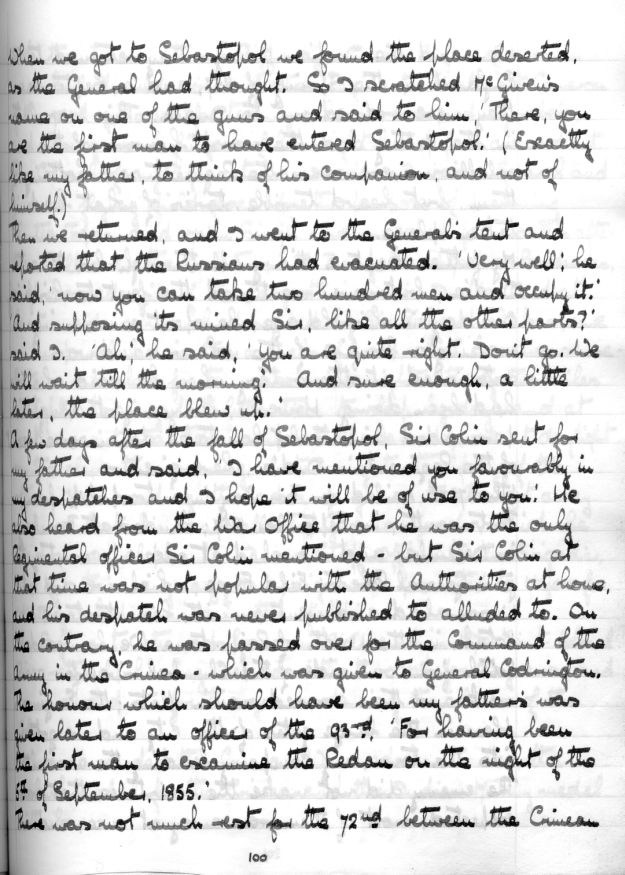 When we got to Sebastopol we found the place deserted,
as the General had thought. So I scratched McGiven's
name on one of the guns and said to him, 'There, you
are the first man to have entered Sebastopol.' (Exactly
like my father, to think of his companion, and not of
himself.)
Then we returned, and I went to the General's tent and
reported that the Russians had evacuated. 'Very well', he
said, 'now you can take two hundred men and occupy it.'
'And supposing its mined Sir, like all the other parts?'
said I. 'Ah', he said, 'you are quite right. Don't go. We
will wait till the morning.' And sure enough, a little
later, the place blew up.'
A few days after the fall of Sebastopol, Sir Colin sent for
my father and said, 'I have mentioned you favourably in
my despatches and I hope it will be of use to you.' He
also heard from the War Office that he was the only
Regimental officer Sir Colin mentioned - but Sir Colin at
that time was not popular with the Authorities at home,
and his despatch was never published to alluded to. On
the contrary, he was passed over for the Command of the
Army in the Crimea - which was given to General Codrington.
The honour which should have been my father's was
given later to an officer of the 93rd. 'For having been
the first man to examine the Redan on the night of the
of September, 1855.'
There was not much rest for the 72nd between the Crimean
100